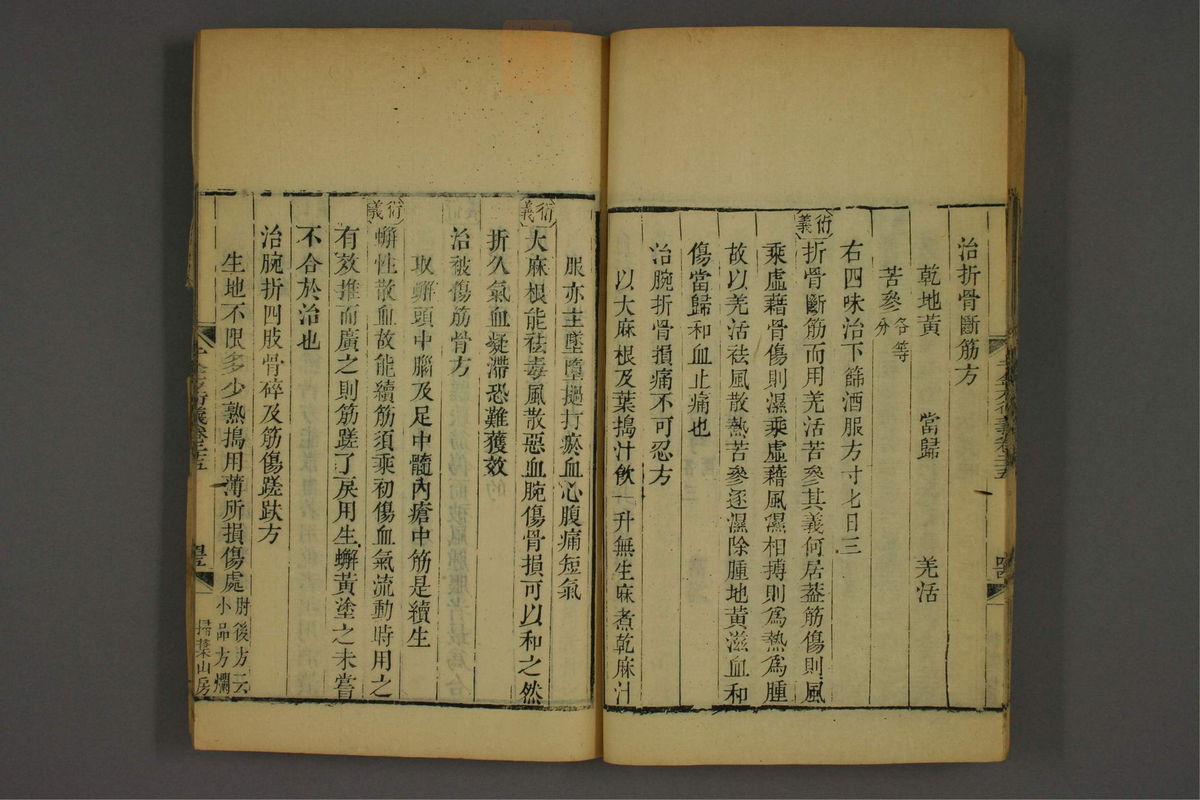 治折骨斷筋方
乾地黃　當歸　羌活
苦參各等分
右四味治下篩酒服方寸七日三
衍義
折骨斷筋而用羌活苦參其義何居葢筋傷則風
乘虛藉骨傷則濕乘虛藉風濕相搏則爲熱爲腫
故以羌活祛風散熱苦參逐濕除腫地黃滋血和
傷當歸和血止痛也
治腕折骨損痛不可忍方
以大麻根及葉搗汁飲一升無生麻煮乾麻汁
服亦主墜墮撾打瘀血心腹痛短氣
衍義
大麻根能祛毒風散惡血腕傷骨損可以和之然
折久氣血凝滯恐難獲效
治被傷筋骨方
取蠏頭中腦及足中髓內瘡中筋是續生
衍義
蠏性散血故能續筋須乘初傷血氣流動時用之
有效推而廣之則筋蹉了戾用生蠏黃塗之未嘗
不合於治也
治腕折四肢骨碎及筋傷蹉跌方
生地不限多少熟搗用薄所損傷處肘後方云
小品方爛
千金方衍義卷二十五
掃葉山房